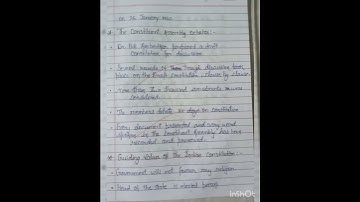 on 26 January 1950
The Constituent Assembly
Dr. B.R Ambedkar prepared a draft
Constitution for discussion
Several rounds of Thorough discussion took
place on the Draft constitution, clause by clause
More than two thousand amendments were
considered.
The members debate days on constitution
Every document presented and every word
spoken in the Constituent Assembly has been
recorded and preserved
Guiding Values of the Indian Constitution :-
Government will not favour any religion
Head of the State is elected person
InShOt